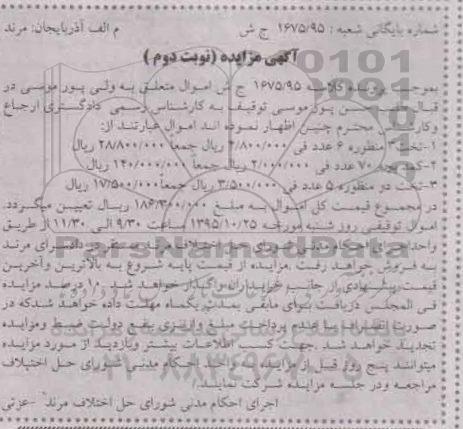 شماره بایگانی شعبه : ۱۶۷۵/۹۵ ج ش م الف آذربایجان: مرند
آگهی مزایده (نوبت دوم)
بموجب پرونده کلاسه ۱۶۷۵/۹۵ ج ش اموال متعلق به ولی پور موسی در
قبال پور موسی توقیف به کارشناس رسمی دادگستری ارجاع
وکارشناس محترم چنین اظهار نموده اند اموال عبارتند از:
۱-تخت ۳ منظوره ۶ عدد فی ۴/۸۰۰/۰۰۰ ریال جمعا ۲۸/۸۰۰/۰۰۰ ریال
۲-کمد بچه ۷۰ عدد فی ۲/۰۰۰/۰۰۰ ریال جمعا ۱۴۰/۰۰۰/۰۰۰ ریال
۳-تخت دو منظوره ۵ عدد فی ۳/۵۰۰/۰۰۰ ریال جمعا ۱۷/۵۰۰/۰۰۰ ریال
در مجموع قیمت کل اموال به مبلغ ۱۸۶/۳۰۰/۰۰۰ ریال تعیین میگردد.
اموال توقیفی روز شنبه مورخه ۱۳۹۵/۱۰/۲۵ ساعت ۹/۳۰ الی ۱۱/۳۰ از طریق
واحد اجرای احکام مدنی شورای حل اختلاف مرند مستقر در دادسرای مرند
به فروش خواهد رفت .مزایده از قیمت پایه شروع به بالاترین وآخرین
قیمت پیشنهادی از جانب خریداران واگذار خواهد شد ۱۰ درصد مزایده
فی المجلس دریافت برای مابقی بمدت یکماه مهلت داده خواهد شدکه در
صورت انصراف یا عدم پرداخت مبلغ واریزی بنفع دولت ضبط ومزایده
تجدید خواهد شد .جهت کسب اطلاعات بیشتر وبازدید از مورد مزایده
میتوانند پنج روز قبل از مزایده به واحد اجرای احکام مدنی شورای حل اختلاف
مراجعه ودر جلسه مزایده شرکت نمایند.
اجرای احکام مدنی شورای حل اختلاف مرند -عزتی
ParsNamadData
۰۲۱-۸۸۳۴۹۶۷۰-۵